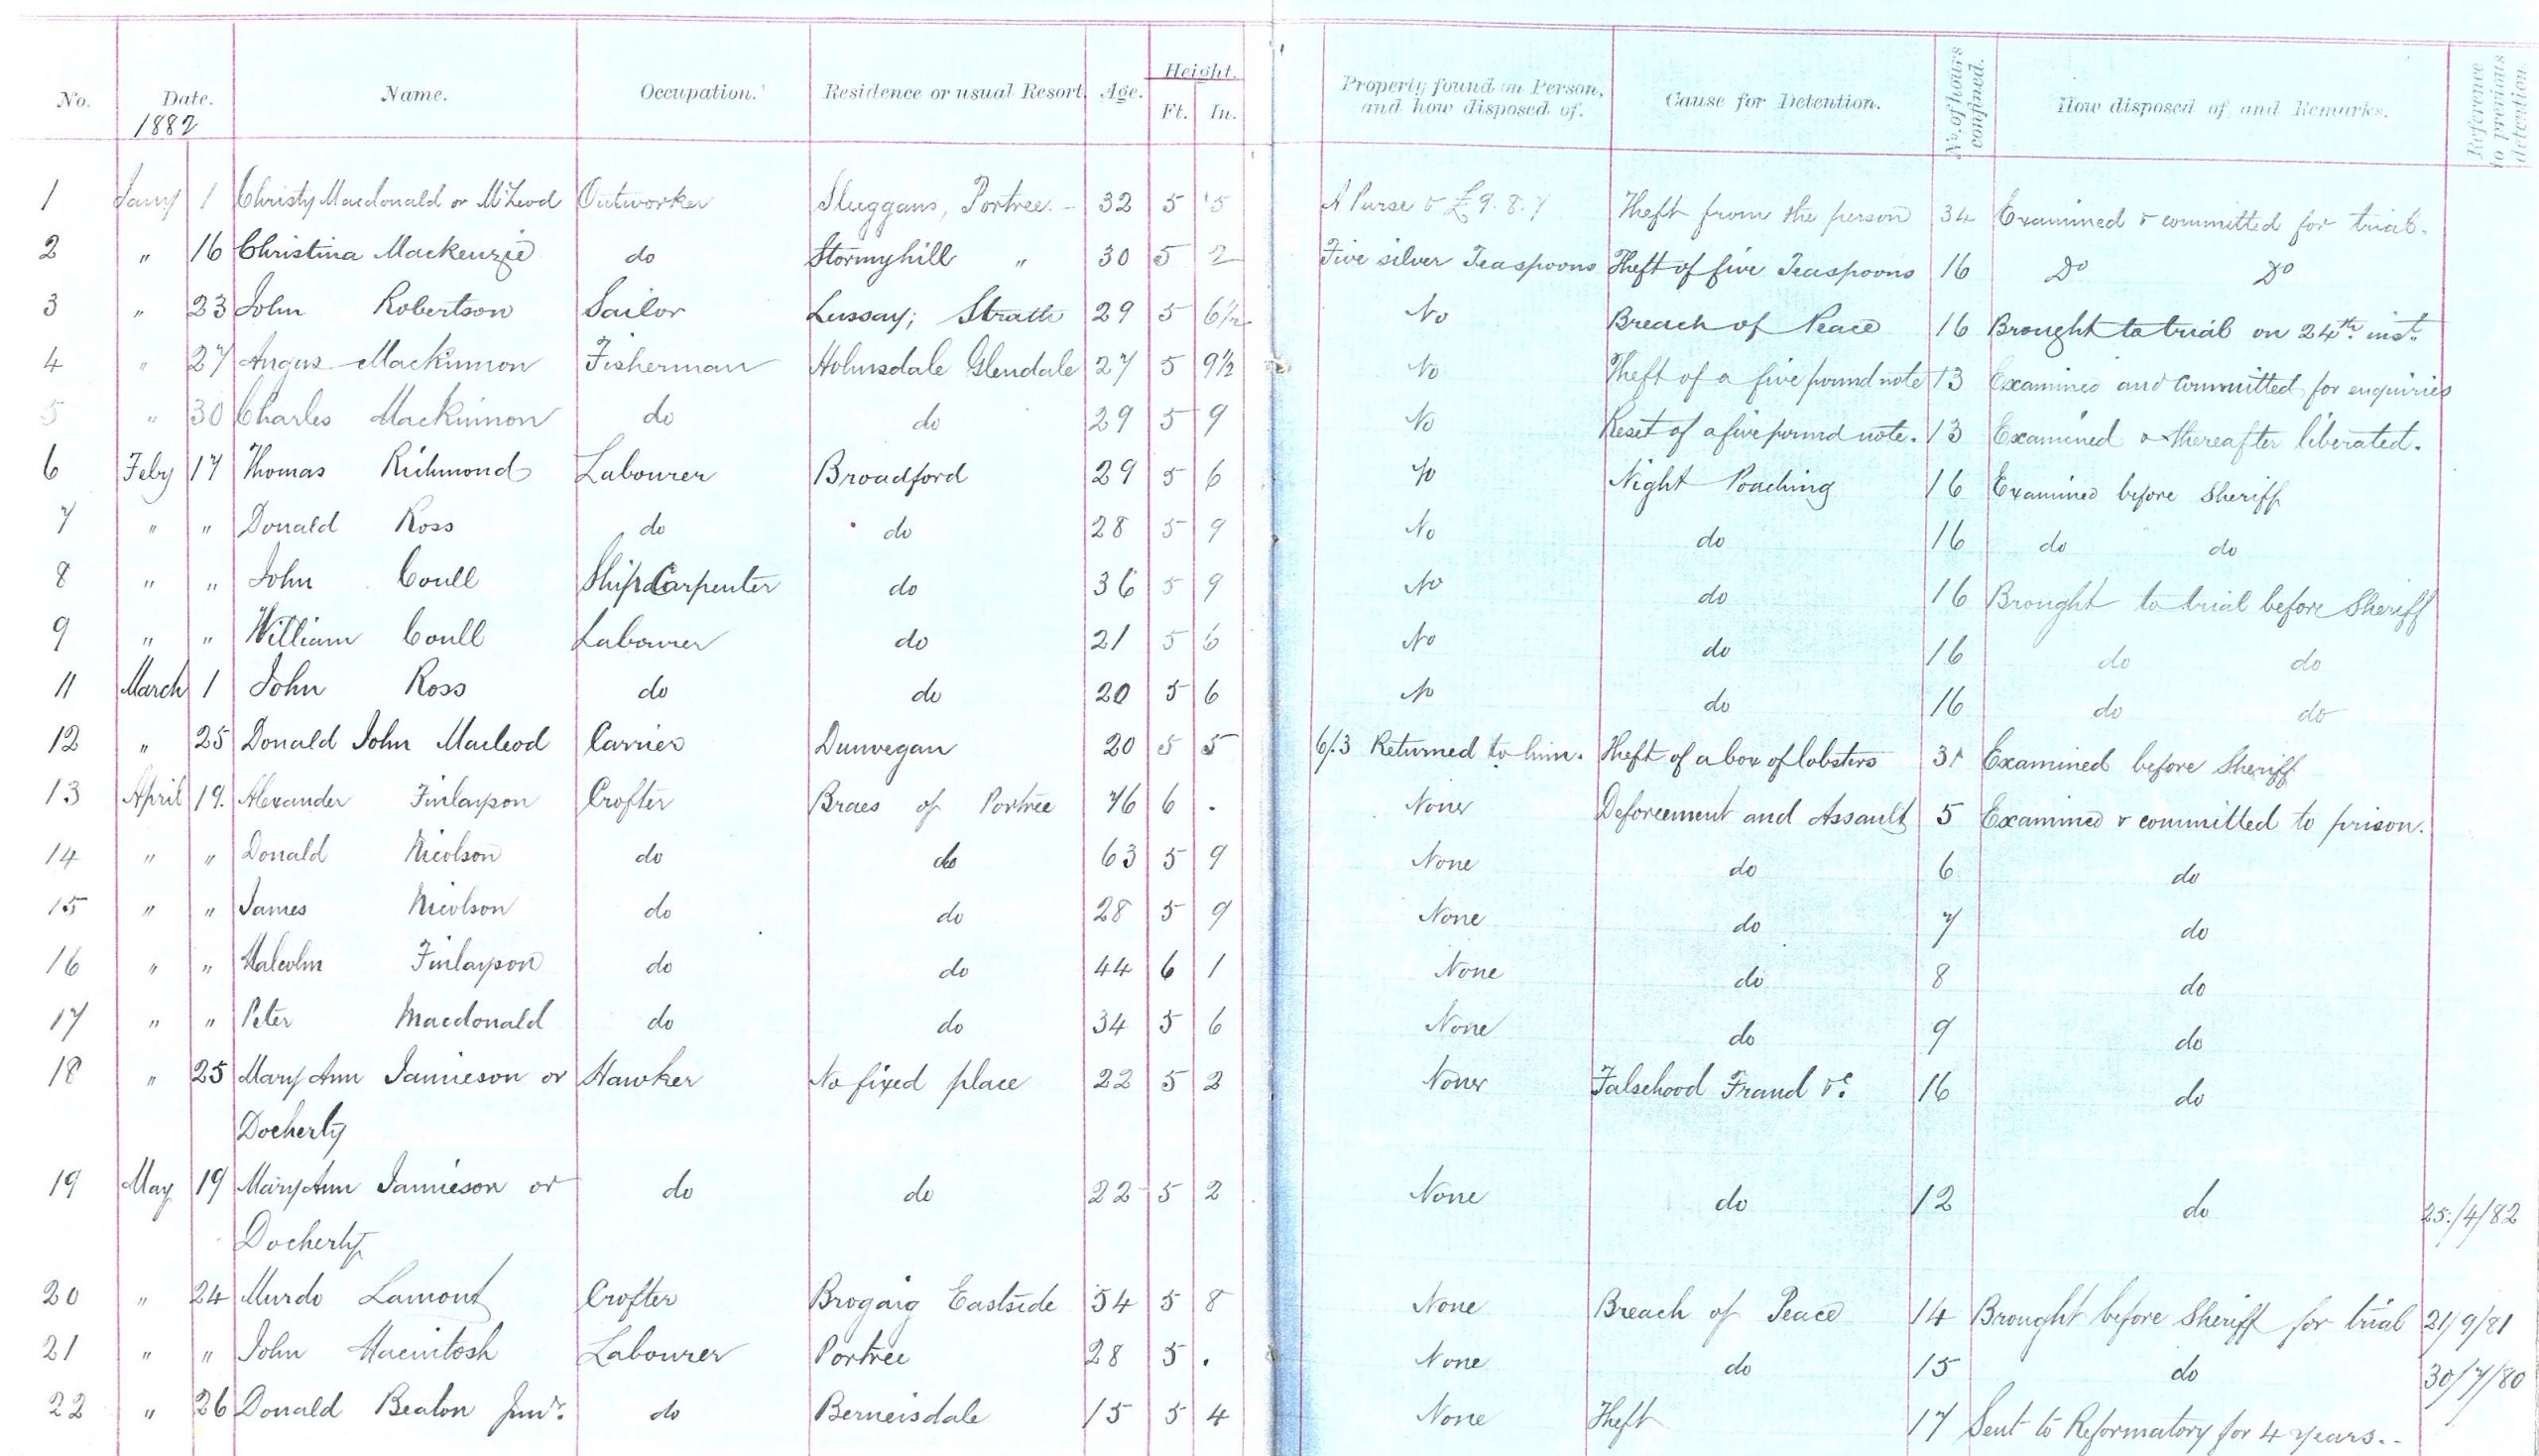 No. Date. Name. Occupation. Residence or usual Resort. Age. Height. Ft. In. Property found on Person, and how disposed of. Cause for Detention. No. of hours confined. How disposed of and Remarks. Reference to previous detention.
1882
1 Jany 1 Christy Macdonald or McLeod Outworker Sluggans, Portree. 32 5 5 A Purse & £9.8.7 Theft from the person 34 Examined & committed for trial.
2 " 16 Christina Mackenzie do Stormyhill " 30 5 2 Five silver Teaspoons Theft of five Teaspoons 16 Do Do
3 " 23 John Robertson Sailor Lussay; Strath 29 5 6½ No Breach of Peace 16 Brought to trial on 24th inst.
4 " 27 Angus Mackinnon Fisherman Holmsdale Glendale 27 5 9½ No Theft of a five pound note 13 Examined and committed for enquiries
5 " 30 Charles Mackinnon do do 29 5 9 No Reset of a five pound note. 13 Examined & thereafter liberated.
6 Feby 17 Thomas Richmond Labourer Broadford 29 5 6 No Night Poaching 16 Examined before Sheriff
7 " " Donald Ross do do 28 5 9 No do 16 do do
8 " " John Coull Ship Carpenter do 36 5 9 No do 16 Brought to trial before Sheriff
9 " " William Coull Labourer do 21 5 6 No do 16 do do
11 March 1 John Ross do do 20 5 6 No do 16 do do
12 " 25 Donald John Macleod Carrier Dunvegan 20 5 5 6/.3 Returned to him. Theft of a box of lobsters Examined before Sheriff
13 April 19. Alexander Finlayson Crofter Braes of Portree 76 6 . None Deforcement and Assault 5 Examined & committed to prison.
14 " " Donald Nicolson do do 63 5 9 None do 6 do
15 " " James Nicolson do do 28 5 9 None do 7 do
16 " " Malcolm Finlayson do do 44 6 1 None do 8 do
17 " " Peter Macdonald do do 34 5 6 None do 9 do
18 " 25 Mary Ann Jamieson or Hawker No fixed place 22 5 2 None Falsehood Fraud &c. 16 do
Docherty
19 May 19 Mary Ann Jamieson or do do 22 5 2 None do 12 do 25/4/82
Docherty
20 " 24 Murdo Lamont Crofter Brogaig Eastside 54 5 8 None Breach of Peace 14 Brought before Sheriff for trial 21/9/81
21 " " John Macintosh Labourer Portree 28 5 . None do 15 do 30/7/80
22 " 26 Donald Beaton Junr. do Berneisdale 15 5 4 None Theft 17 Sent to Reformatory for 4 years.